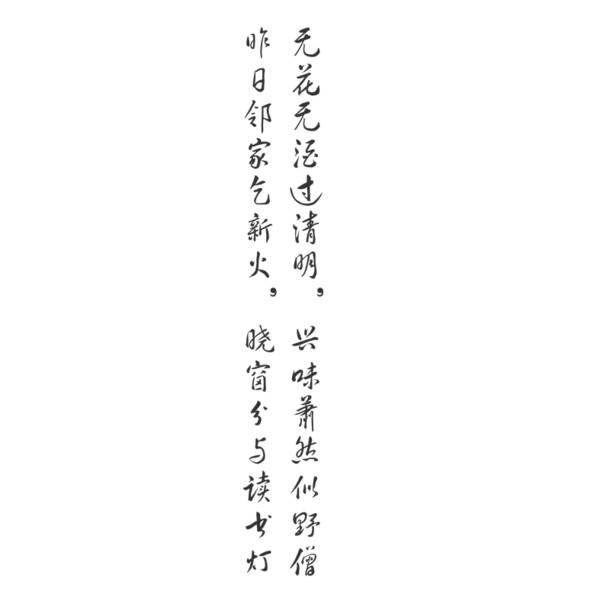 无花无酒过清明，兴味萧然似野僧
昨日邻家乞新火，晓窗分与读书灯